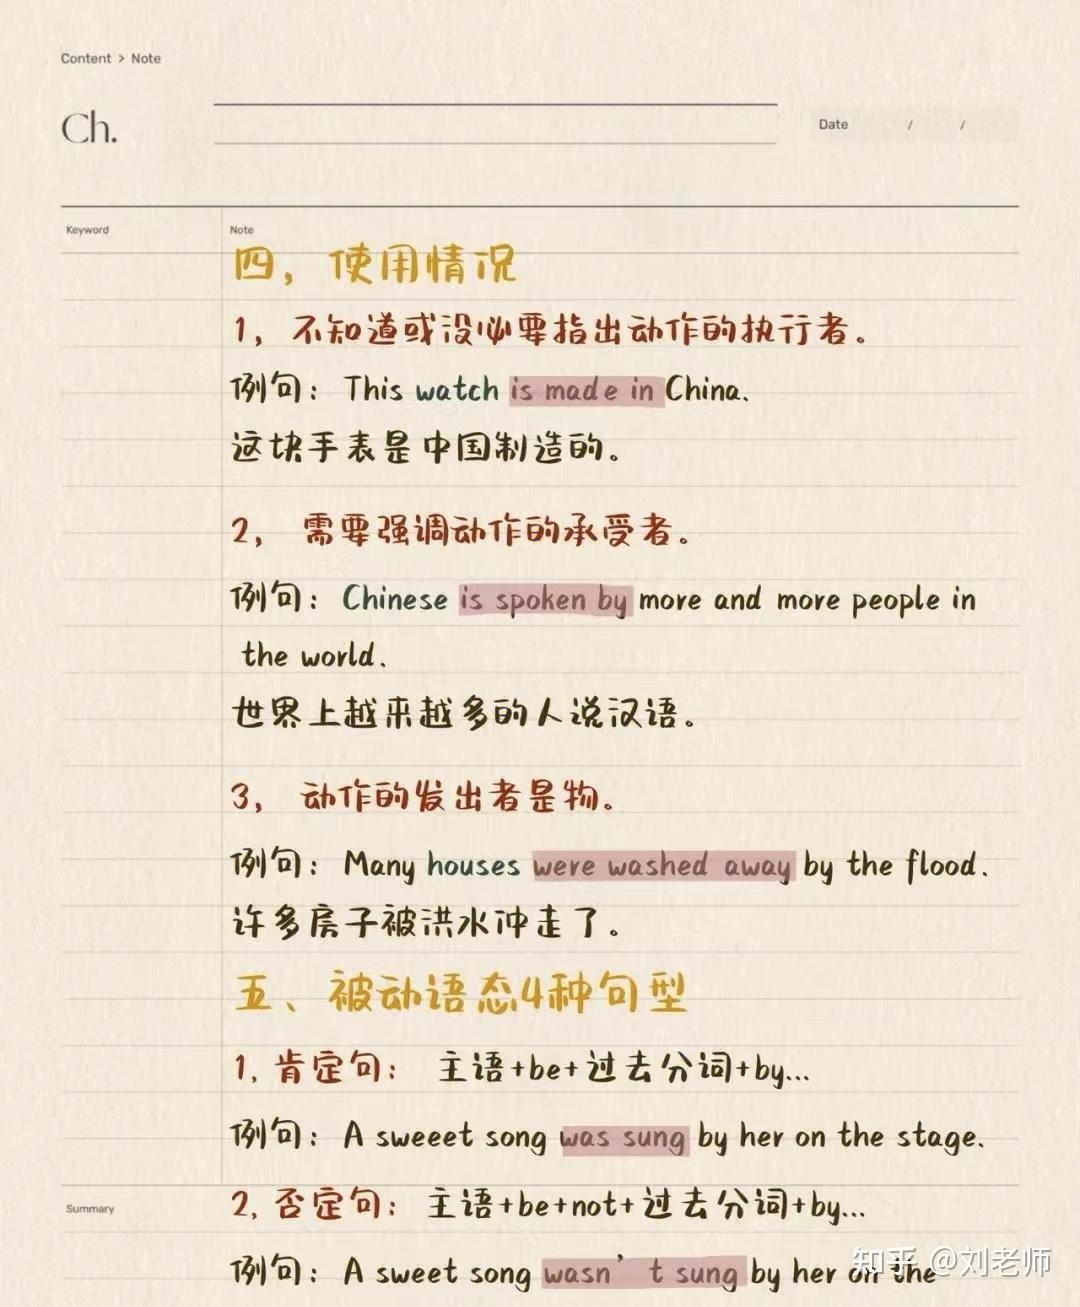 Content > Note
Ch.
Date / /
Keyword
Note
四，使用情况
1，不知道或没必要指出动作的执行者。
例句：This watch is made in China.
这块手表是中国制造的。
2，需要强调动作的承受者。
例句：Chinese is spoken by more and more people in
the world.
世界上越来越多的人说汉语。
3，动作的发出者是物。
例句：Many houses were washed away by the flood.
许多房子被洪水冲走了。
五、被动语态4种句型
1, 肯定句：主语+be+过去分词+by...
例句：A sweeet song was sung by her on the stage.
2, 否定句：主语+be+not+过去分词+by...
Summary
例句：A sweet song wasn't sung by her on the
知乎 @刘老师